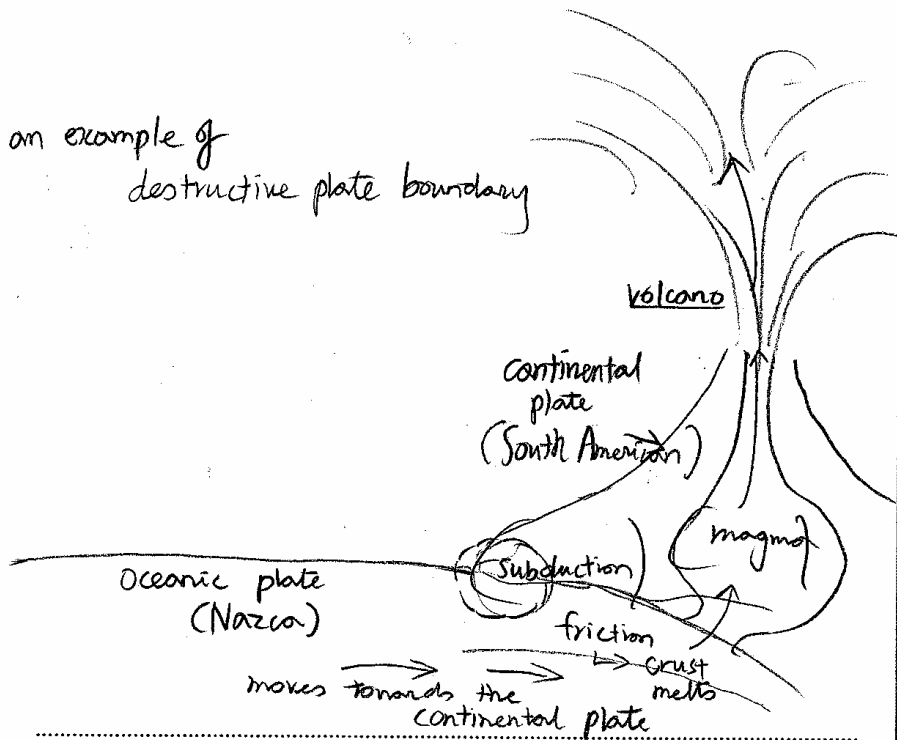 an example of
destructive plate boundary
volcano
continental
plate
(South American)
magma
subduction
oceanic plate
(Nazca)
friction
crust
melts
moves towards the
continental plate